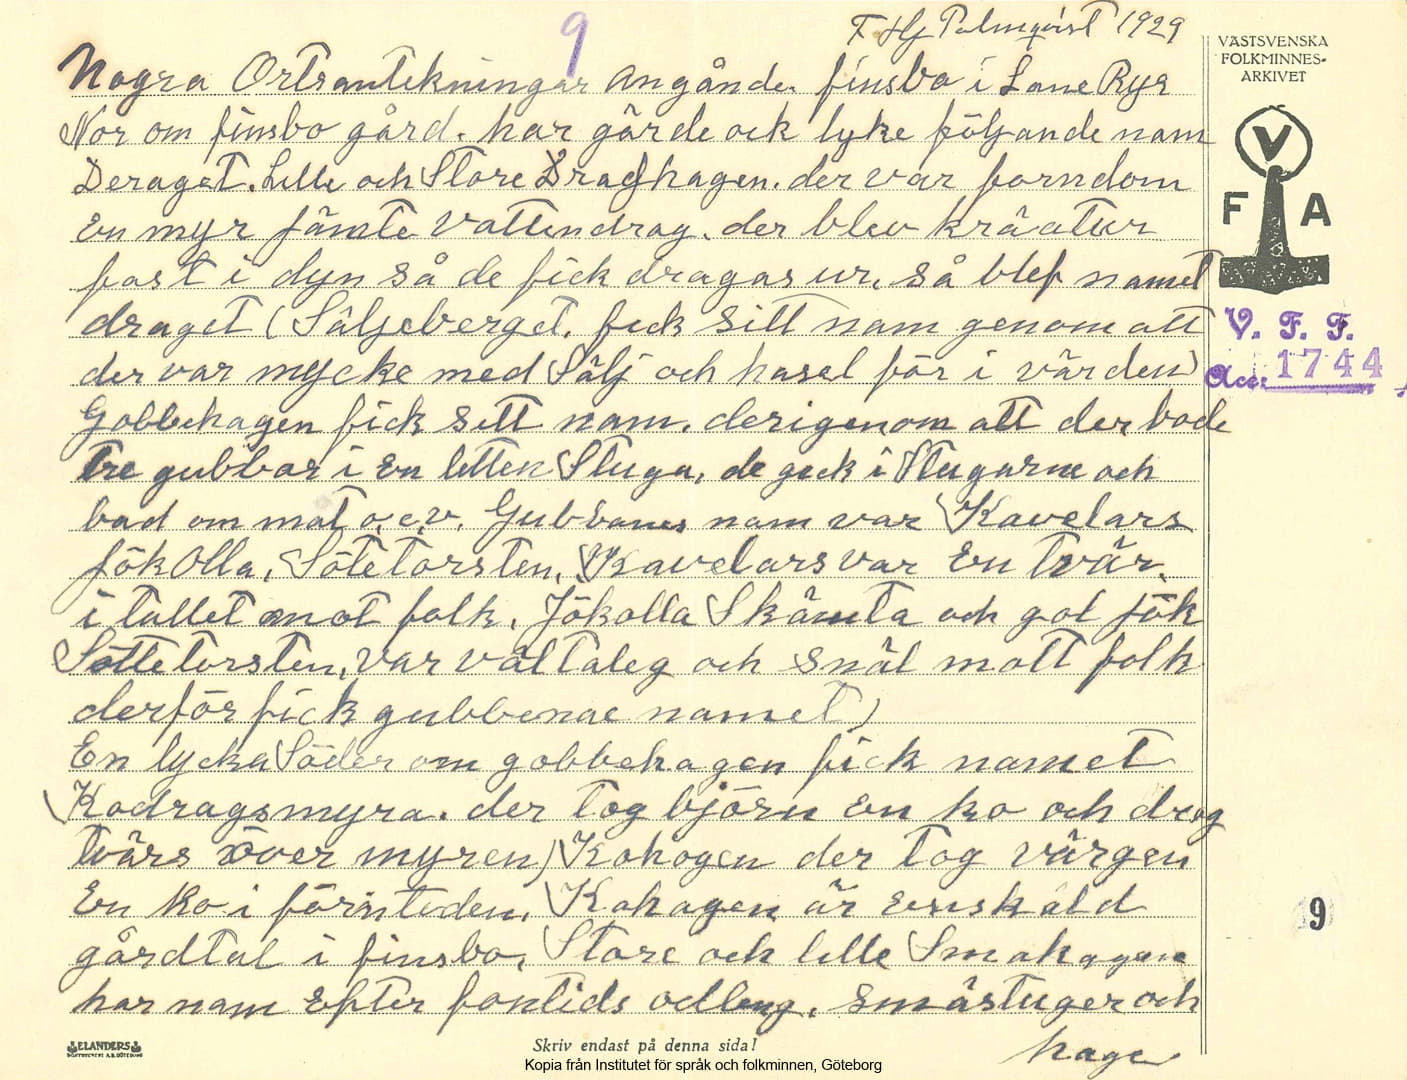 9
F Hj Palmqvist 1929
VÄSTSVENSKA
FOLKMINNES-
ARKIVET
V
F A
V. F. F.
Acc: 1744
Nogra Ortsantekningar angånde. finsbo i Lane Ryr
Nor om finsbo gård. har gärde ock lyke följande nam
Deraget. Lille och Store Draghagen. der var forndom
En myr jämte vattendrag. der blev kräatur
fast i dyn så de fick dragas ur. så blef namet
draget (Säljeberget. fick sitt nam genom att
der var mycke med Sälj och hasel för i värden)
Gobbehagen fick sitt nam. derigenom att der bode
tre gubbar i En letten Stuga, de geck i Stugarne och
bad om mat o.c.v. Gubbanes nam var Kavelars
Jökolla, Sötetorsten, Kavelars var En tvär
i tallet mot folk. Jökolla Skämta och gol jök
Söttetorsten, var vältaleg och snäl mott folk
derför fick gubbenae namet)
En lycka Söder om gobbehagen fick namet
Kodragsmyra. der tog björn En ko och drog
tvärs över myren) Kohögen der tog vargen
En ko i förnteden. Kohagen är Enskäld
gårdtal i finsbo, Store och lelle Smahagane
har nam Efter fontids odleng. småstuger och
hage
9
ELANDERS
BOKTRYCKERI A.B. GÖTEBORG
Skriv endast på denna sida!
Kopia från Institutet för språk och folkminnen, Göteborg